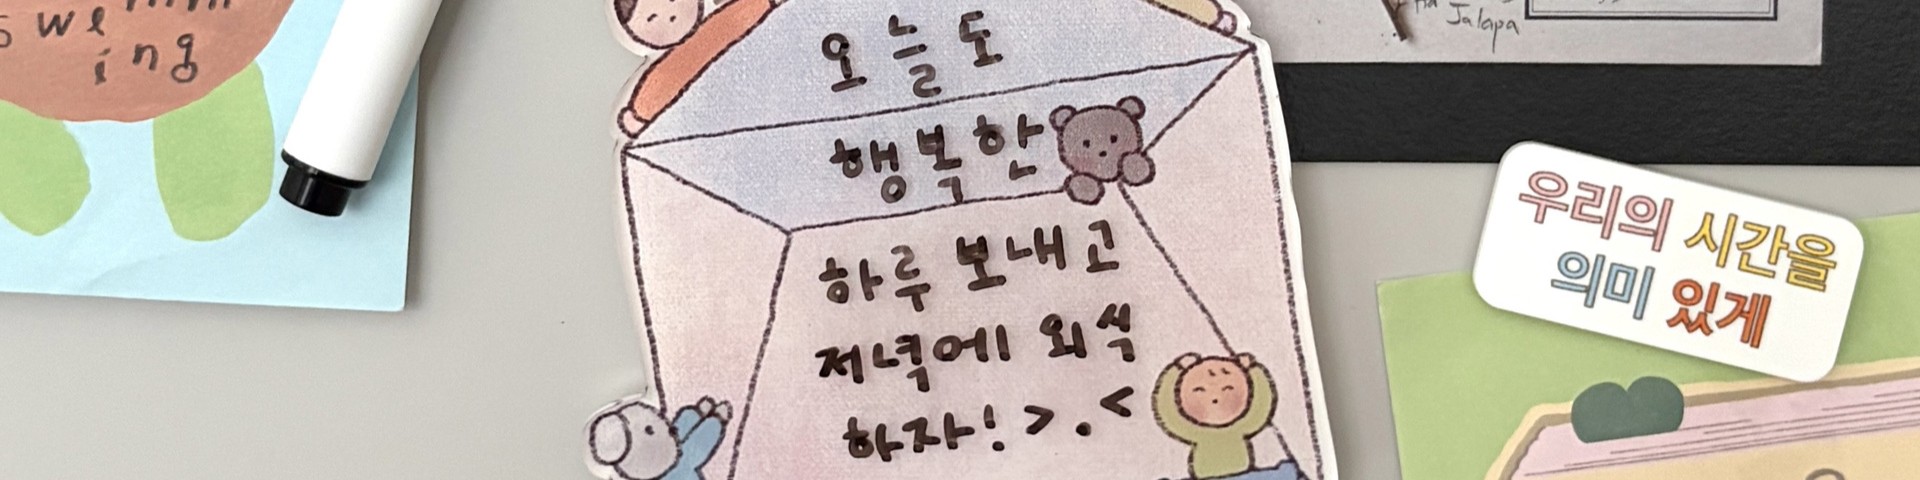 we
ing
오늘도
행복한
하루 보내고
저녁에 외식
하자! >.<
Jalapa
우리의 시간을
의미 있게